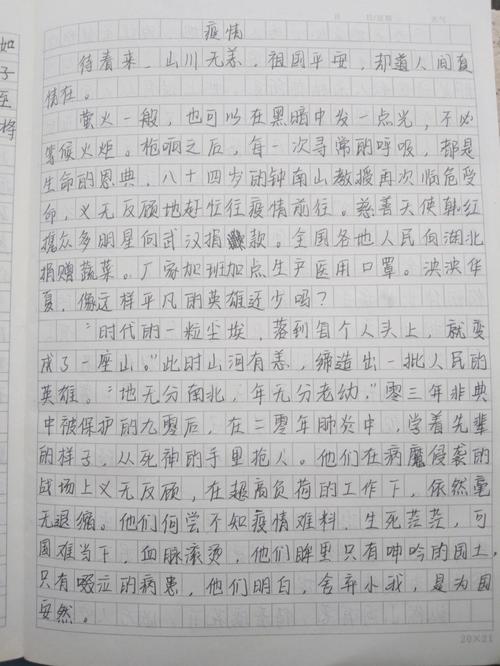 疫情
待春来，山川无恙，祖国平安，却道人间真
情在。
萤火一般，也可以在黑暗中发一点光，不必
等候火炬。枪响之后，每一次寻常的呼吸，都是
生命的恩典，八十四岁的钟南山教授再次临危受
命，义无反顾地赶往疫情前往。慈善天使韩红
携众多明星向武汉捐款。全国各地人民向湖北
捐赠蔬菜。厂家加班加点生产医用口罩。泱泱华
夏，像这样平凡的英雄还少吗？
“时代的一粒尘埃，落到每个人头上，就变
成了一座山。”此时山河有恙，缔造出一批人民的
英雄。“地无分南北，年无分老幼，”零三年非典
中被保护的九零后，在二零年肺炎中，学着先辈
的样子，从死神的手里抢人。他们在病魔侵袭的
战场上义无反顾，在超高负荷的工作下，依然毫
无退缩。他们何尝不知疫情难料，生死茫茫，可
国难当下，血脉滚烫，他们眸里只有呻吟的国土，
只有啜泣的病患，他们明白，舍弃小我，是为国
安然。
20×21
如
子
至
将